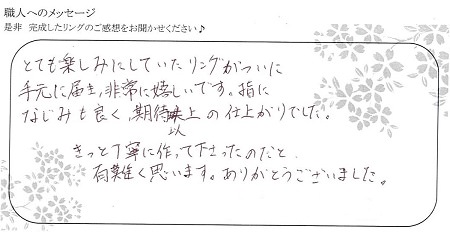 職人へのメッセージ
是非 完成したリングのご感想をお聞かせください♪
とても楽しみにしていたリングがついに
手元に届き,非常に嬉しいです。指に
なじみも良く,期待以上の仕上がりでした。
きっと丁寧に作って下さったのだと
有難く思います。ありがとうございました。